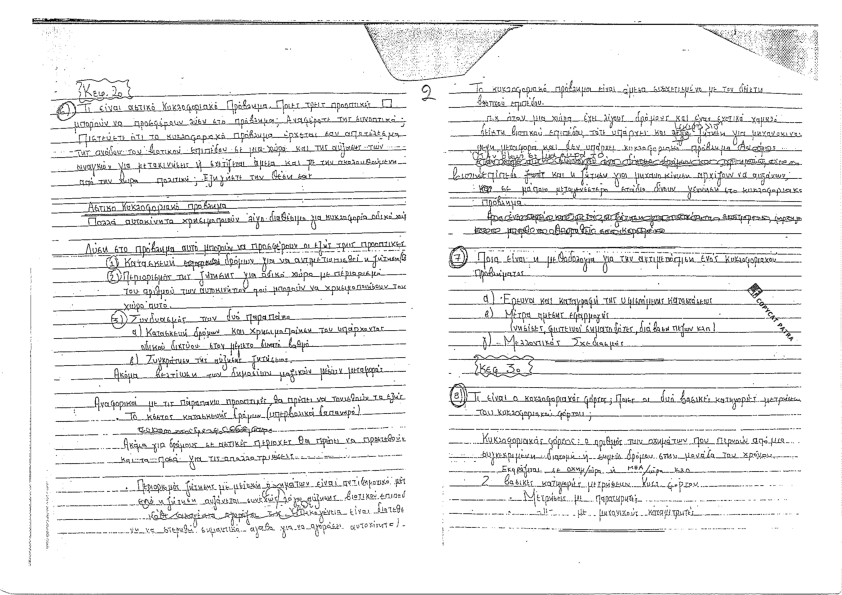 Κεφ. 2ο
6) Τι είναι αστικό Κυκλοφοριακό Πρόβλημα. Ποιες τρεις προοπτικές
μπορούν να προσφέρουν λύση στο πρόβλημα; Αναφέρατε της συνοπτικά;
Πιστεύετε ότι το κυκλοφοριακό πρόβλημα έρχεται σαν αποτέλεσμα
της ανόδου του βιοτικού επιπέδου σε μια χώρα και της αύξησης των
αναγκών για μετακινήσεις ή σχετίζεται άμεσα και με την ακολουθούμενη
από την χώρα πολιτική; Εξηγήστε την θέση σας
Αστικό Κυκλοφοριακό πρόβλημα
Πολλά αυτοκίνητα χρησιμοποιούν λίγο διαθέσιμο για κυκλοφορία οδικό χώρο
Λύση στο πρόβλημα αυτό μπορούν να προσφέρουν οι εξής τρεις προοπτικές
1) Κατασκευή δρόμων για να αντιμετωπισθεί η ζήτηση
2) Περιορισμός της ζήτησης για οδικό χώρο με περιορισμό
του αριθμού των αυτοκινήτων που μπορούν να χρησιμοποιήσουν τον
χώρο αυτό.
3) Συνδυασμός των δυο παραπάνω
α) Κατασκευή δρόμων και χρησιμοποίηση του υπάρχοντος
οδικού δικτύου στον μέγιστο δυνατό βαθμό
β) Συγκράτηση της αύξησης ζητήσεως.
Ακόμα βελτίωση των δημοσίων μαζικών μέσων μεταφοράς
Αναφορικά με τις παραπάνω προοπτικές θα πρέπει να τονισθούν τα εξής
- Το κόστος κατασκευής δρόμων (υπερβολικά δαπανηρό)
Ακόμα για δρόμους σε αστικές περιοχές θα πρέπει να προστεθούν
και τα ποσά για τις απαλλοτριώσεις
Περιορισμός ζήτησης με μείωση οχημάτων είναι αντιδημοτικό μέτρο
η ζήτηση αυξάνεται συνεχώς λόγω αύξησης βιοτικού επιπέδου
οικογένεια είναι διατεθ
να στερηθεί σημαντικά αγαθά για να αγοράσει αυτοκίνητο!
2
Το κυκλοφοριακό πρόβλημα είναι άμεσα συσχετισμένο με τον δείκτη
βιοτικού επιπέδου.
π.χ όταν μια χώρα έχει λίγους δρόμους και είναι σχετικά χαμηλό
δείκτη βιοτικού επιπέδου τότε υπάρχει και ζήτηση για μηχανοκίνη
μεταφορά και δεν υπάρχει κυκλοφοριακό πρόβλημα
βιοτικό επίπεδο και η ζήτηση για μηχανοκίνηση αρχίζουν να αυξάνουν,
σε κάποιο μεταγενέστερο στάδιο δίνουν γέννηση στο κυκλοφοριακό
πρόβλημα
7) Ποια είναι η μεθοδολογία για την αντιμετώπιση ενός κυκλοφοριακού
Προβλήματος
α) Έρευνα και καταγραφή της υφιστάμενης καταστάσεως
β) Μέτρα άμεσης εφαρμογής
(νησίδες, φωτεινοί σηματοδότες, διαβάσεις πεζών κλπ)
γ) Μελλοντικός Σχεδιασμός
COPYCAT PATRA
Κεφ 3ο
8) Τι είναι ο κυκλοφοριακός φόρτος; Ποιες οι δυό βασικές κατηγορίες μετρήσεων
του κυκλοφοριακού φόρτου;
Κυκλοφοριακός φόρτος: ο αριθμός των οχημάτων που περνούν από μια
συγκεκριμένη διατομή ή σημείο δρόμου στην μονάδα του χρόνου.
Εκφράζεται σε οχημ/ώρα ή ΜΕΑ/ώρα κλπ
2 βασικές κατηγορίες μετρήσεων Κυκλ φόρτου
- Μετρήσεις με παρατηρητές
- -//- με μηχανικούς καταμετρητές